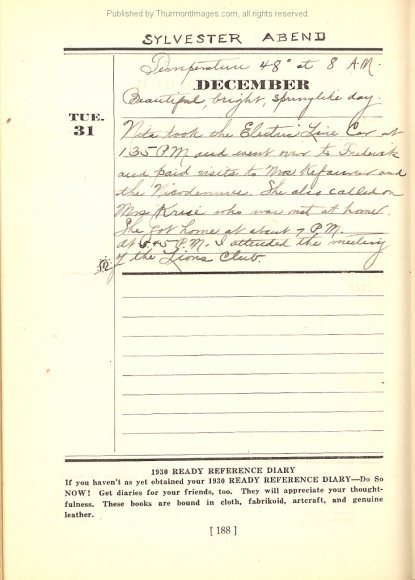 Published by ThurmontImages.com, all rights reserved.
SYLVESTER ABEND
Temperature 48° at 8 A.M.
DECEMBER
Beautiful, bright, springlike day.
TUE.
31
took the Electric Line Car at
1.35 P.M. and went over to Frederick
and paid visits to Mrs Kefauver and
the Nicodemuses. She also called on
Mrs Kruse who was not at home.
She got home at about 7 P.M.
At 6.45 P.M. I attended the meeting
of the Lions Club.
1930 READY REFERENCE DIARY
If you haven't as yet obtained your 1930 READY REFERENCE DIARY—Do So
NOW! Get diaries for your friends, too. They will appreciate your thought-
fulness. These books are bound in cloth, fabrikoid, artcraft, and genuine
leather.
[ 188 ]